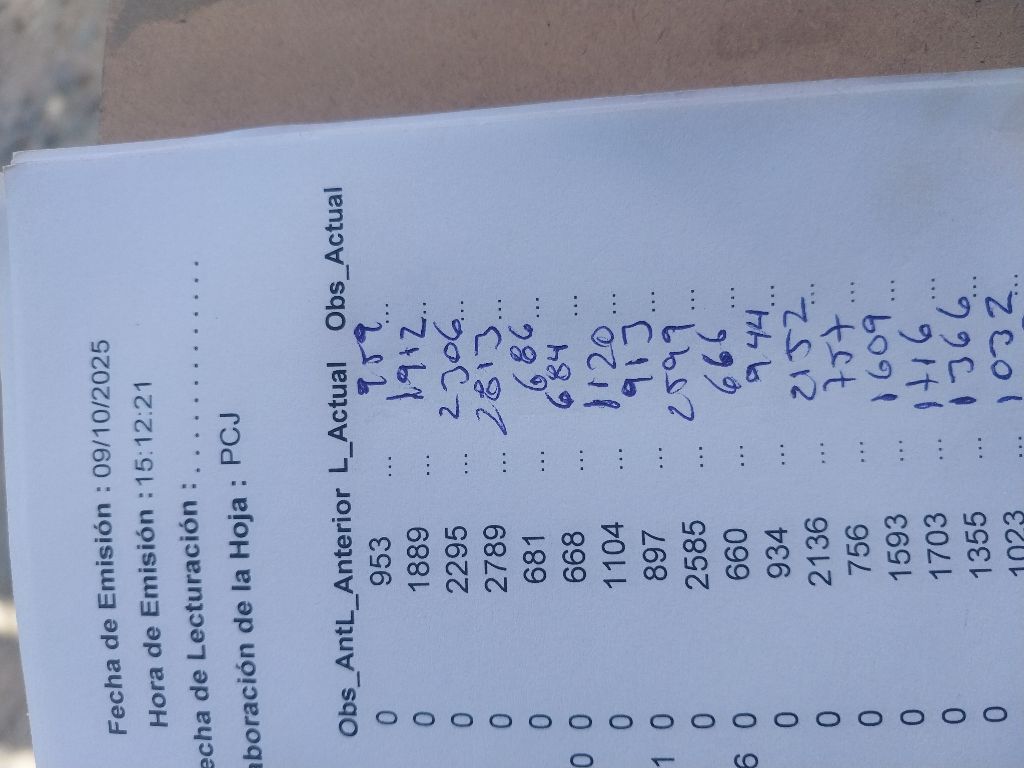 Fecha de Emisión : 09/10/2025
Hora de Emisión : 15:12:21
echa de Lecturación : ....................
boración de la Hoja : PCJ
Obs_AntL_Anterior L_Actual Obs_Actual
0 953 ... 959 ...
0 1889 ... 1912 ...
0 2295 ... 2306 ...
0 2789 ... 2813 ...
0 681 ... 686 ...
0 0 668 ... 684 ...
0 1104 ... 1120 ...
1 0 897 ... 913 ...
0 2585 ... 2599 ...
6 0 660 ... 666 ...
0 934 ... 944 ...
0 2136 ... 2152 ...
0 756 ... 757 ...
0 1593 ... 1609 ...
0 1703 ... 1716 ...
0 1355 ... 1366 ...
1023 ... 1032 ...